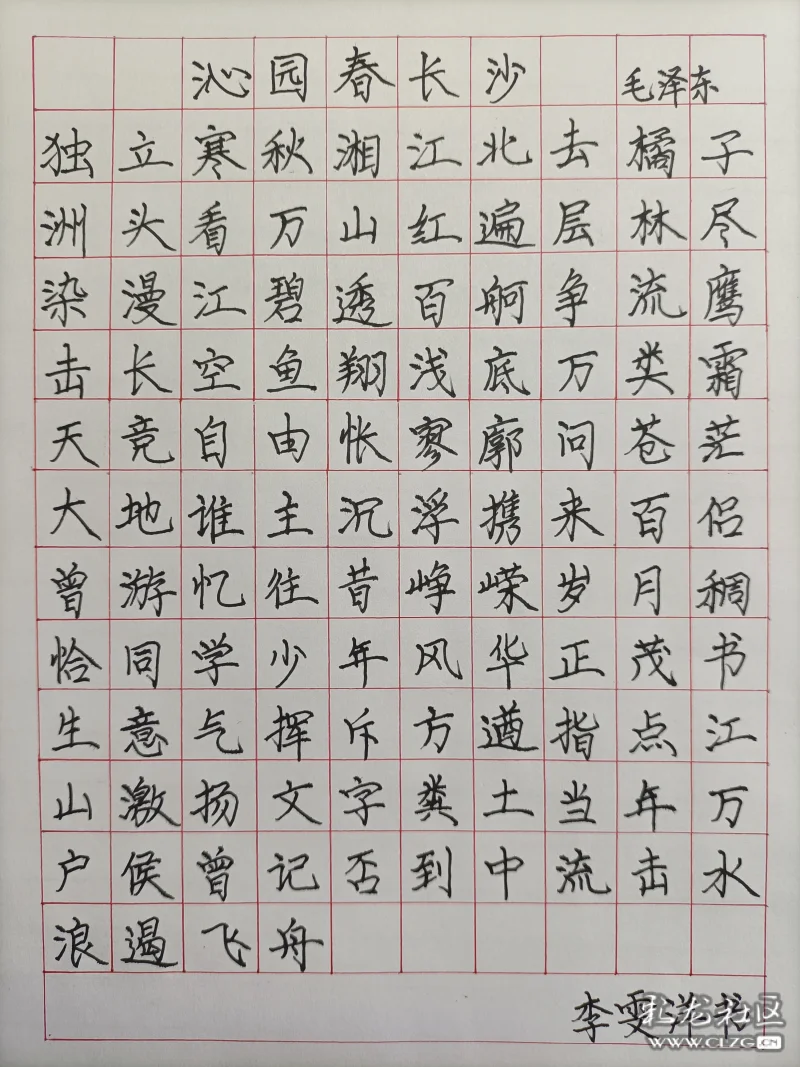 沁园春长沙 毛泽东
独立寒秋湘江北去橘子
洲头看万山红遍层林尽
染漫江碧透百舸争流鹰
击长空鱼翔浅底万类霜
天竞自由怅寥廓问苍茫
大地谁主沉浮携来百侣
曾游忆往昔峥嵘岁月稠
恰同学少年风华正茂书
生意气挥斥方遒指点江
山激扬文字粪土当年万
户侯曾记否到中流击水
浪遏飞舟
李雯洋书
扎龙社区
www.CLZG.CN